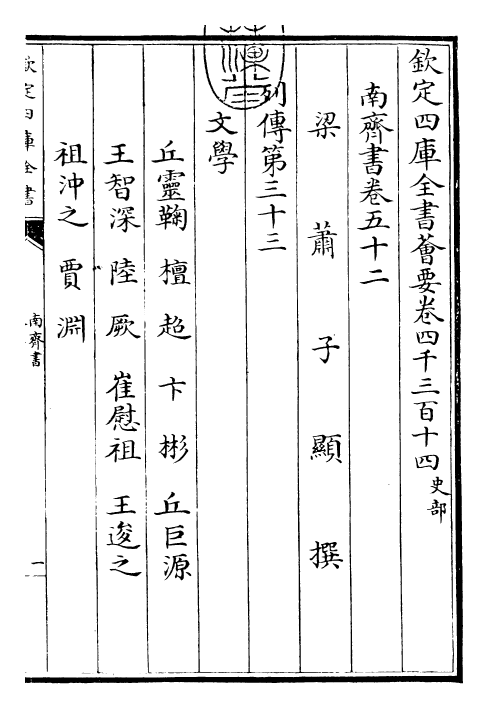 欽定四庫全書薈要卷四千三百十四 史部
南齊書卷五十二
梁 蕭 子 顯 撰
列傳第三十三
文學
丘靈鞠 檀超 卞彬 丘巨源
王智深 陸厥 崔慰祖 王逡之
祖沖之 賈淵
欽定四庫全書
南齊書
一